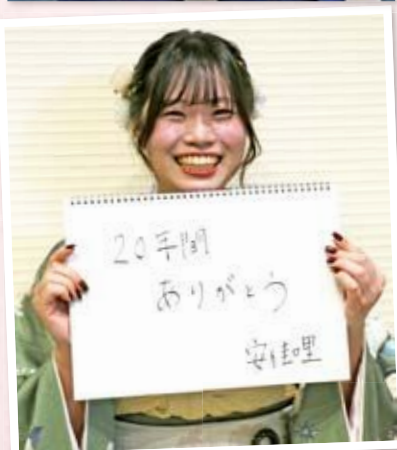 20年間
ありがとう
安佳里